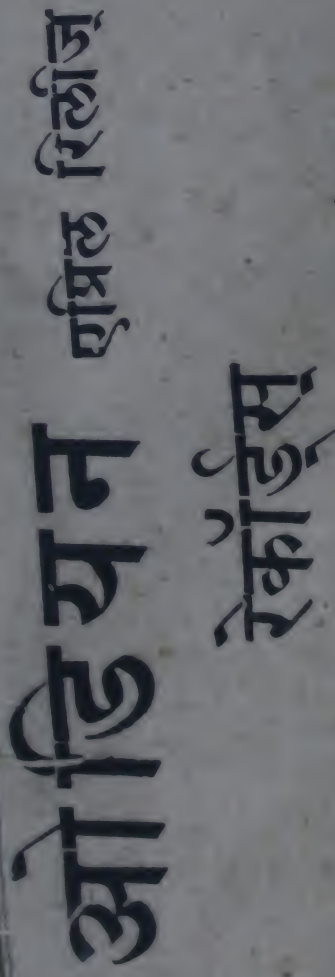 ओडियन एप्रिल रिलीज्
रेकॉर्ड्स्